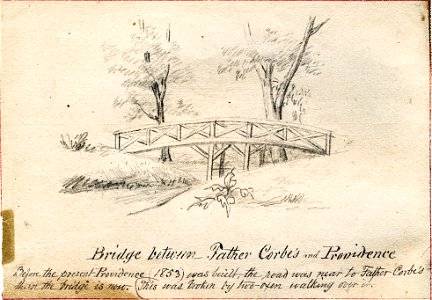 Bridge between Father Corbe's and Providence
Before the present Providence (1853) was built, the road was near to Father Corbe's
than the bridge is now. (This was broken by two oxen walking over it.